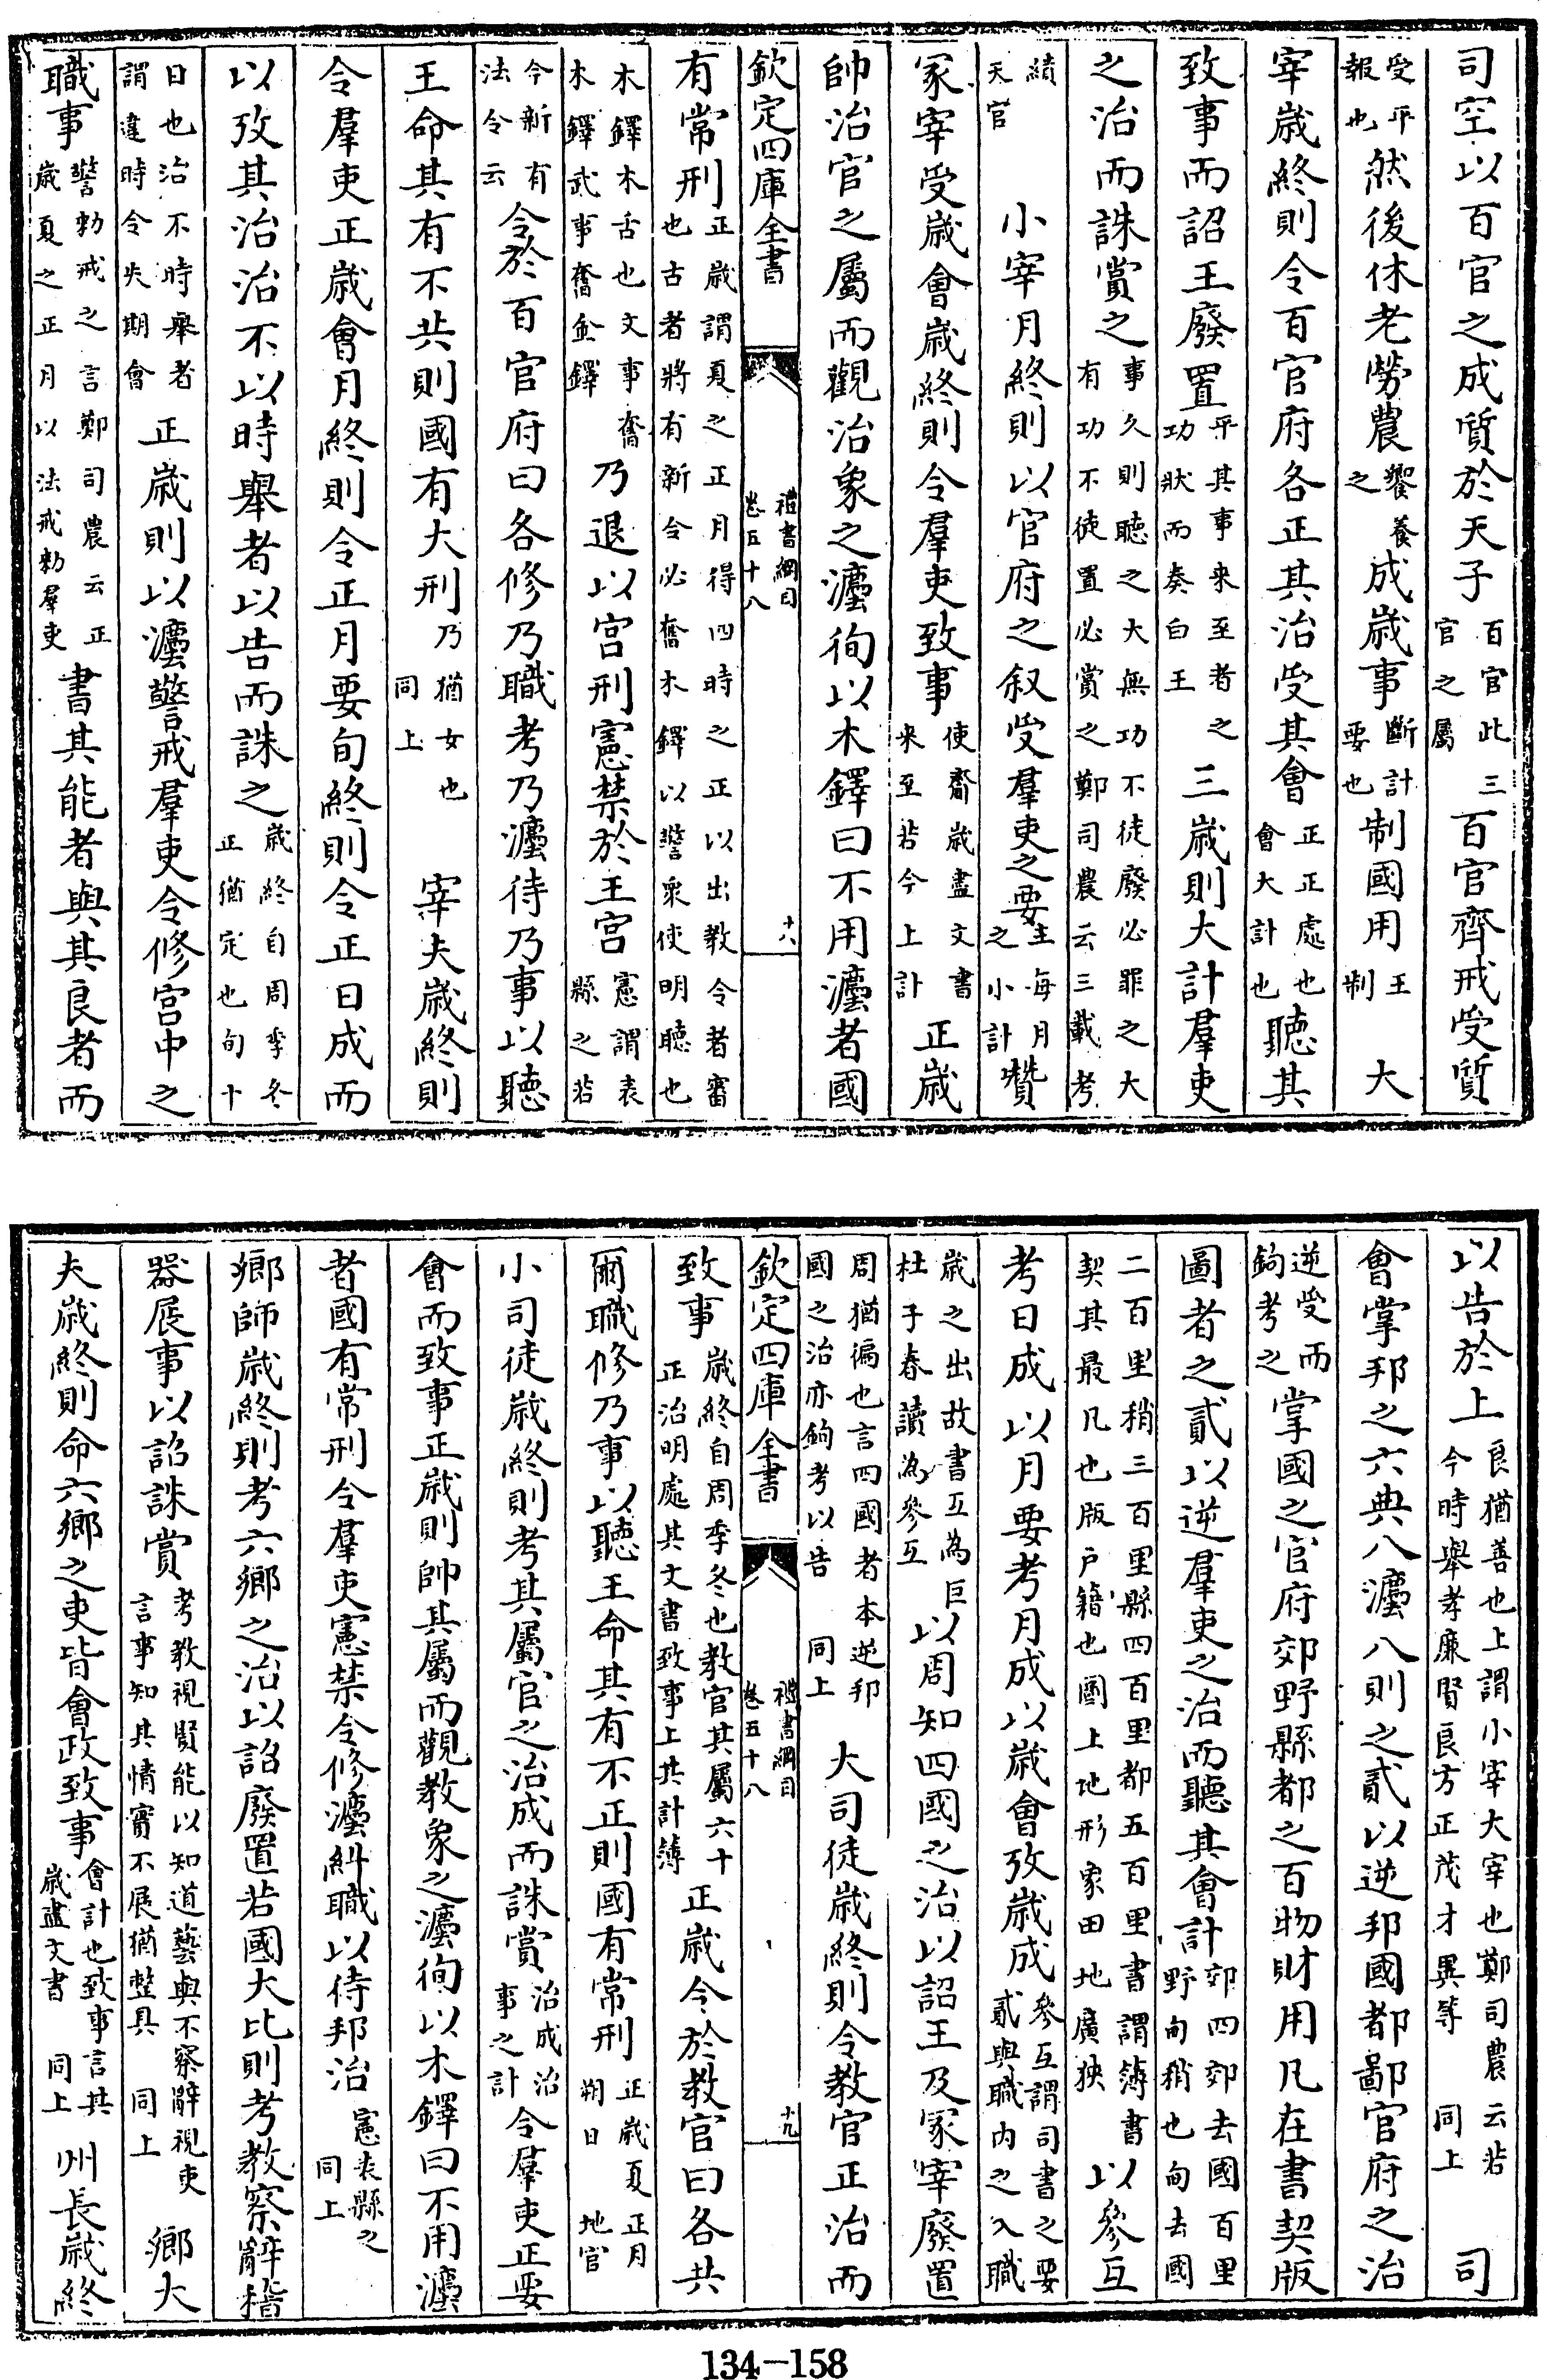 司空以百官之成質於天子百官此三官之屬百官齊戒受質
受平報也然後休老勞農饗養之成歲事斷計要也制國用王制　大
宰歲終則令百官府各正其治受其會正正處也會大計也聽其
致事而詔王廢置平其事来至者之功狀而奏白王三歲則大計羣吏
之治而誅賞之事久則聽之大無功不徒廢必罪之大有功不徒置必賞之鄭司農云三載考
績天官　小宰月終則以官府之叙受羣吏之要主每月之小計贊
冢宰受歲會歲終則令羣吏致事使齎歲盡文書来至若今上計正歲
帥治官之屬而觀治象之灋徇以木鐸曰不用灋者國
欽定四庫全書　禮書綱目卷五十八　十八
有常刑正歲謂夏之正月得四時之正以出教令者審也古者將有新令必奮木鐸以警衆使明聽也
木鐸木舌也文事奮木鐸武事奮金鐸乃退以宫刑憲禁於王宫憲謂表縣之若
今新有法令云令於百官府曰各修乃職考乃灋待乃事以聽
王命其有不共則國有大刑乃猶女也同上　宰夫歲終則
令羣吏正歲會月終則令正月要旬終則令正日成而
以攷其治治不以時舉者以告而誅之歲終自周季冬正猶定也旬十
日也治不時舉者謂違時令失期會正歲則以灋警戒羣吏令修宫中之
職事警勑戒之言鄭司農云正歲夏之正月以法戒勑羣吏書其能者與其良者而
以告於上良猶善也上謂小宰大宰也鄭司農云若今時舉孝廉賢良方正茂才異等同上　司
會掌邦之六典八灋八則之貳以逆邦國都鄙官府之治
逆受而鉤考之掌國之官府郊野縣都之百物財用凡在書契版
圖者之貳以逆羣吏之治而聽其會計郊四郊去國百里野甸稍也甸去國
二百里稍三百里縣四百里都五百里書謂簿書契其最凡也版户籍也圖上地形象田地廣狹以參互
考日成以月要考月成以歲會攷歲成參互謂司書之要貳與職内之入職
歲之出故書互為巨杜子春讀為參互以周知四國之治以詔王及冢宰廢置
周猶徧也言四國者本逆邦國之治亦鉤考以告同上　大司徒歲終則令教官正治而
欽定四庫全書　禮書綱目卷五十八　十九
致事歲終自周季冬也教官其屬六十正治明處其文書致事上其計簿正歲令於教官曰各共
爾職修乃事以聽王命其有不正則國有常刑正歲夏正月朔日地官
小司徒歲終則考其屬官之治成而誅賞治成治事之計令羣吏正要
會而致事正歲則帥其屬而觀教象之灋徇以木鐸曰不用灋
者國有常刑令羣吏憲禁令修灋糾職以待邦治憲表縣之同上
鄉師歲終則考六鄉之治以詔廢置若國大比則考教察辭稽
器展事以詔誅賞考教視賢能以知道藝與不察辭視吏言事知其情實不展猶整具同上　鄉大
夫歲終則命六鄉之吏皆會政致事會計也致事言其歲盡文書同上　州長歲終
134-158